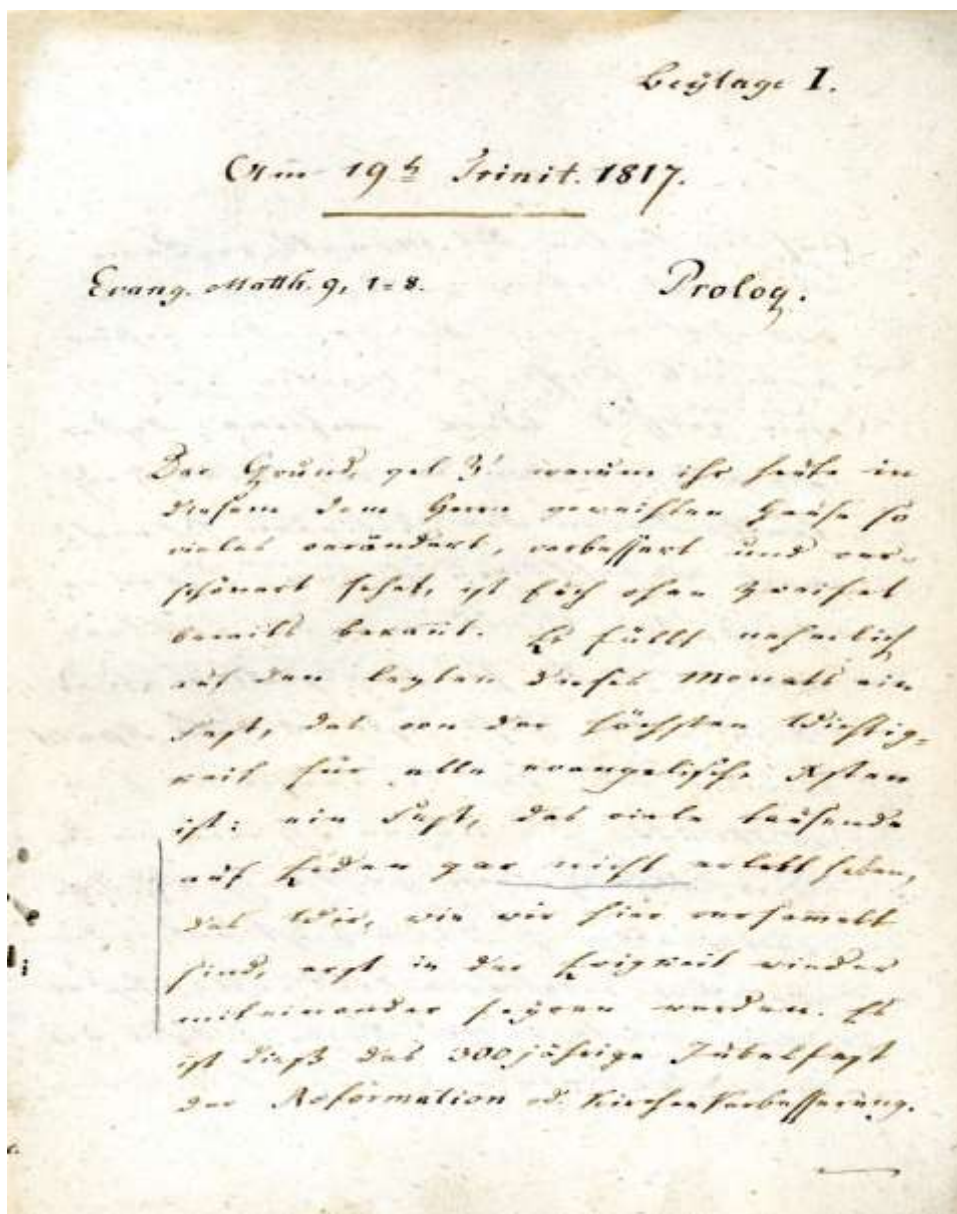 Beÿlage I.
Am 19t. Trinit. 1817.
Evang. Matth. 9, 1-8.
Prolog.
Der Grund, gel. Z! warum ihr heute in
diesem dem Herrn geweihten Hause so
vieles verändert, verbessert und ver-
schönert sehet, ist Euch ohne Zweifel
bereits bekañt. Es fällt nehmlich
auf den lezten dieses Monats ein
Fest, das von der höchsten Wichtig-
keit für alle evangelische Xsten
ist: ein Fest, das viele tausende
auf Erden gar nicht erlebt haben,
das Wir, wie wir hier versam̃elt
sind, erst in der Ewigkeit wieder
miteinander feyren werden. Es
ist dieß das 300jährige Jubelfest
der Reformation od. Kirchenverbesserung.